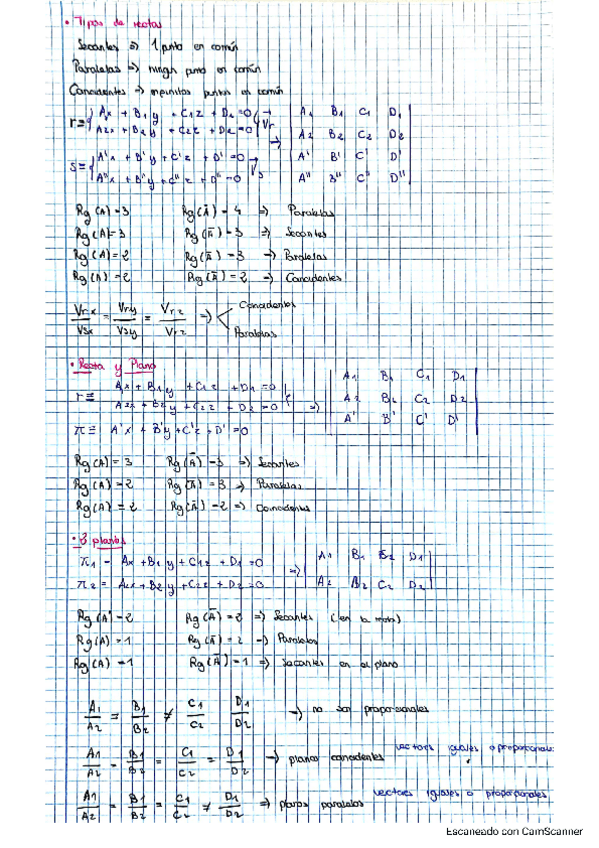 • Tipos de rectas
Secantes => 1 punto en común
Paralelas => ningún punto en común
Coincidentes => infinitos puntos en común
r≡ { A₁x + B₁y + C₁z + D₁ = 0
A₂x + B₂y + C₂z + D₂ = 0 } Vr
s≡ { A'x + B'y + C'z + D' = 0
A''x + B''y + C''z + D'' = 0 } Vs
→ | A₁ B₁ C₁ D₁ |
| A₂ B₂ C₂ D₂ |
| A' B' C' D' |
| A'' B'' C'' D'' |
Rg(A)=3 Rg(Ā)=4 => Paralelas
Rg(A)=3 Rg(Ā)=3 => Secantes
Rg(A)=2 Rg(Ā)=3 → Paralelas
Rg(A)=2 Rg(Ā)=2 → Coincidentes
Vrx/Vsx = Vry/Vsy = Vrz/Vrz → < Coincidentes
Paralelas
• Recta y Plano
r≡ A₁x + B₁y + C₁z + D₁ = 0
A₂x + B₂y + C₂z + D₂ = 0 } =>
π≡ A'x + B'y + C'z + D' = 0
| A₁ B₁ C₁ D₁ |
| A₂ B₂ C₂ D₂ |
| A' B' C' D' |
Rg(A)=3 Rg(Ā)=3 => Secantes
Rg(A)=2 Rg(Ā)=3 → Paralelas
Rg(A)=2 Rg(Ā)=2 => Coincidentes
• 3 planos
π₁ = A₁x + B₁y + C₁z + D₁ = 0
π₂ = A₂x + B₂y + C₂z + D₂ = 0
→ | A₁ B₁ B₂ D₁ |
| A₂ B₂ C₂ D₂ |
Rg(A)=2 Rg(Ā)=2 => Secantes (en la recta)
Rg(A)=1 Rg(Ā)=2 → Paralelos
Rg(A)=1 Rg(Ā)=1 => Secantes en el plano
A₁/A₂ = B₁/B₂ ≠ C₁/C₂ D₁/D₂ → no son proporcionales
A₁/A₂ = B₁/B₂ = C₁/C₂ = D₁/D₂ → planos coincidentes vectores iguales o proporcionales
A₁/A₂ = B₁/B₂ = C₁/C₂ ≠ D₁/D₂ => planos paralelos vectores iguales o proporcionales
Escaneado con CamScanner